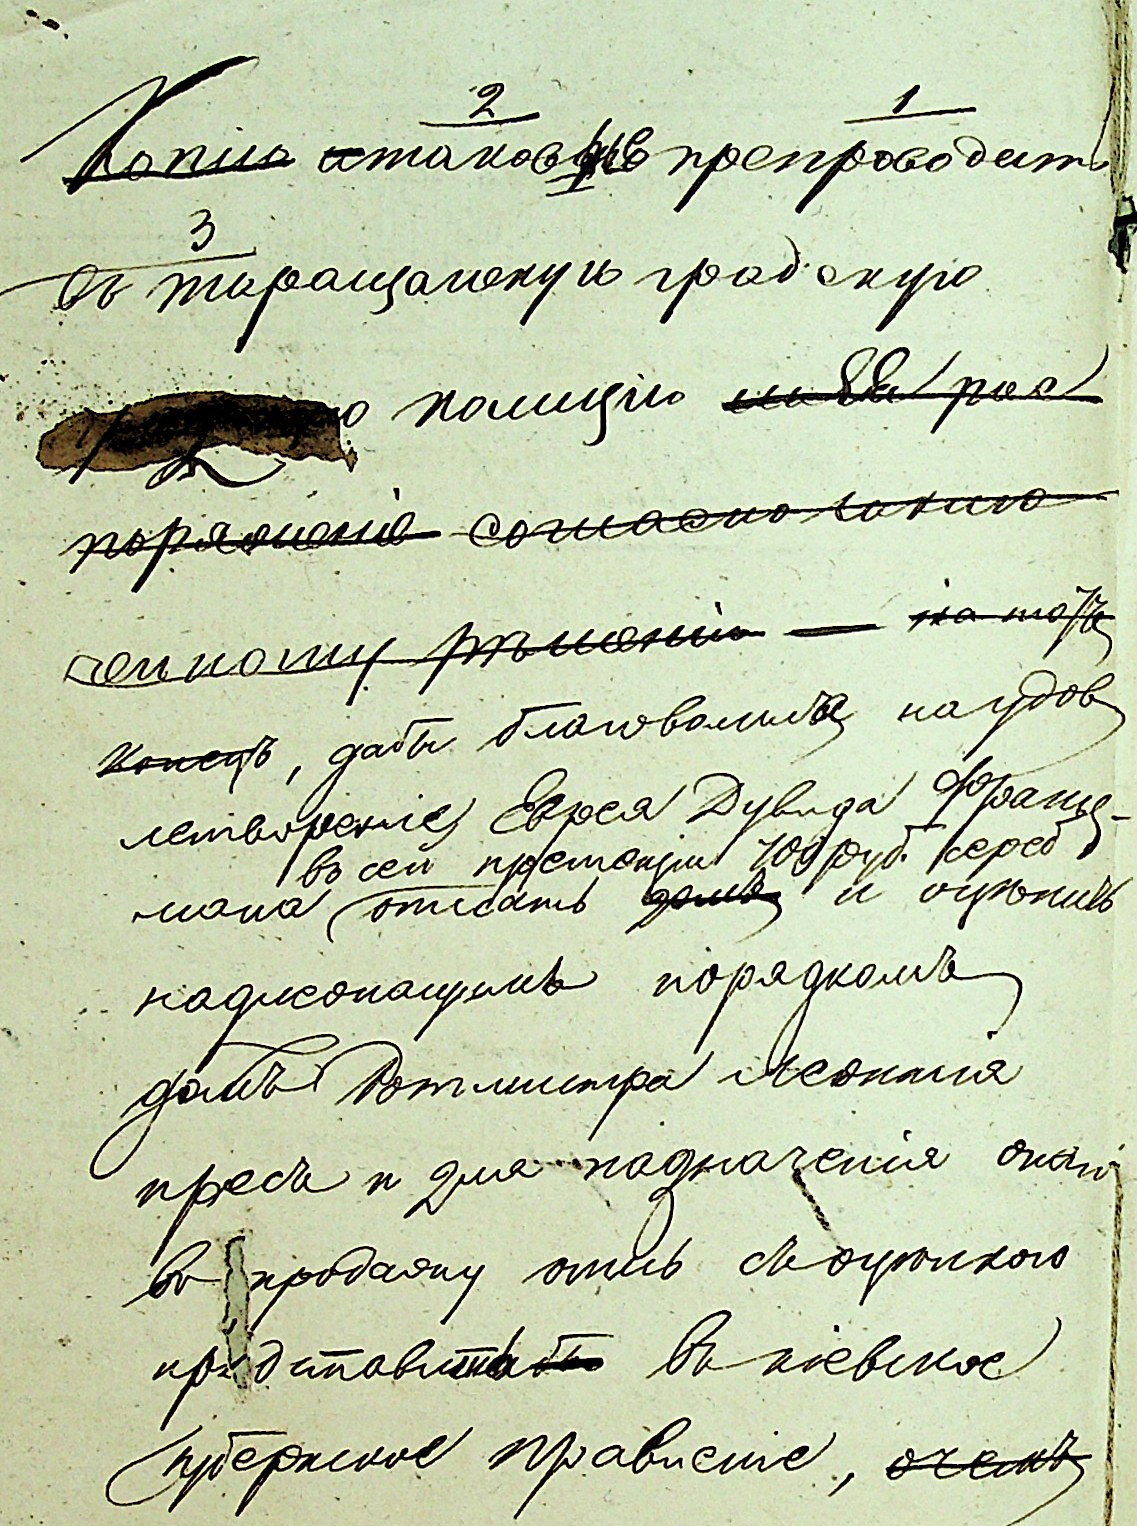 2 1
Копію таковыхъ препроводить
3
въ Таращанскую градскую
полицію на Ея рас
поряженіе согласно заклю
ченному рѣшенію — на тотъ
конецъ, дабы благоволила на удов
летвореніе Еврея Дувида Франц-
въ сей претензіи 100 руб. сереб
мана описать домъ и оцѣнить
надлежащимъ порядкомъ
домъ Ротмистра
и для назначенія онаго
въ продажу опись съ оцѣнкою
представить въ Кіевское
Губернское Правленіе, о чемъ